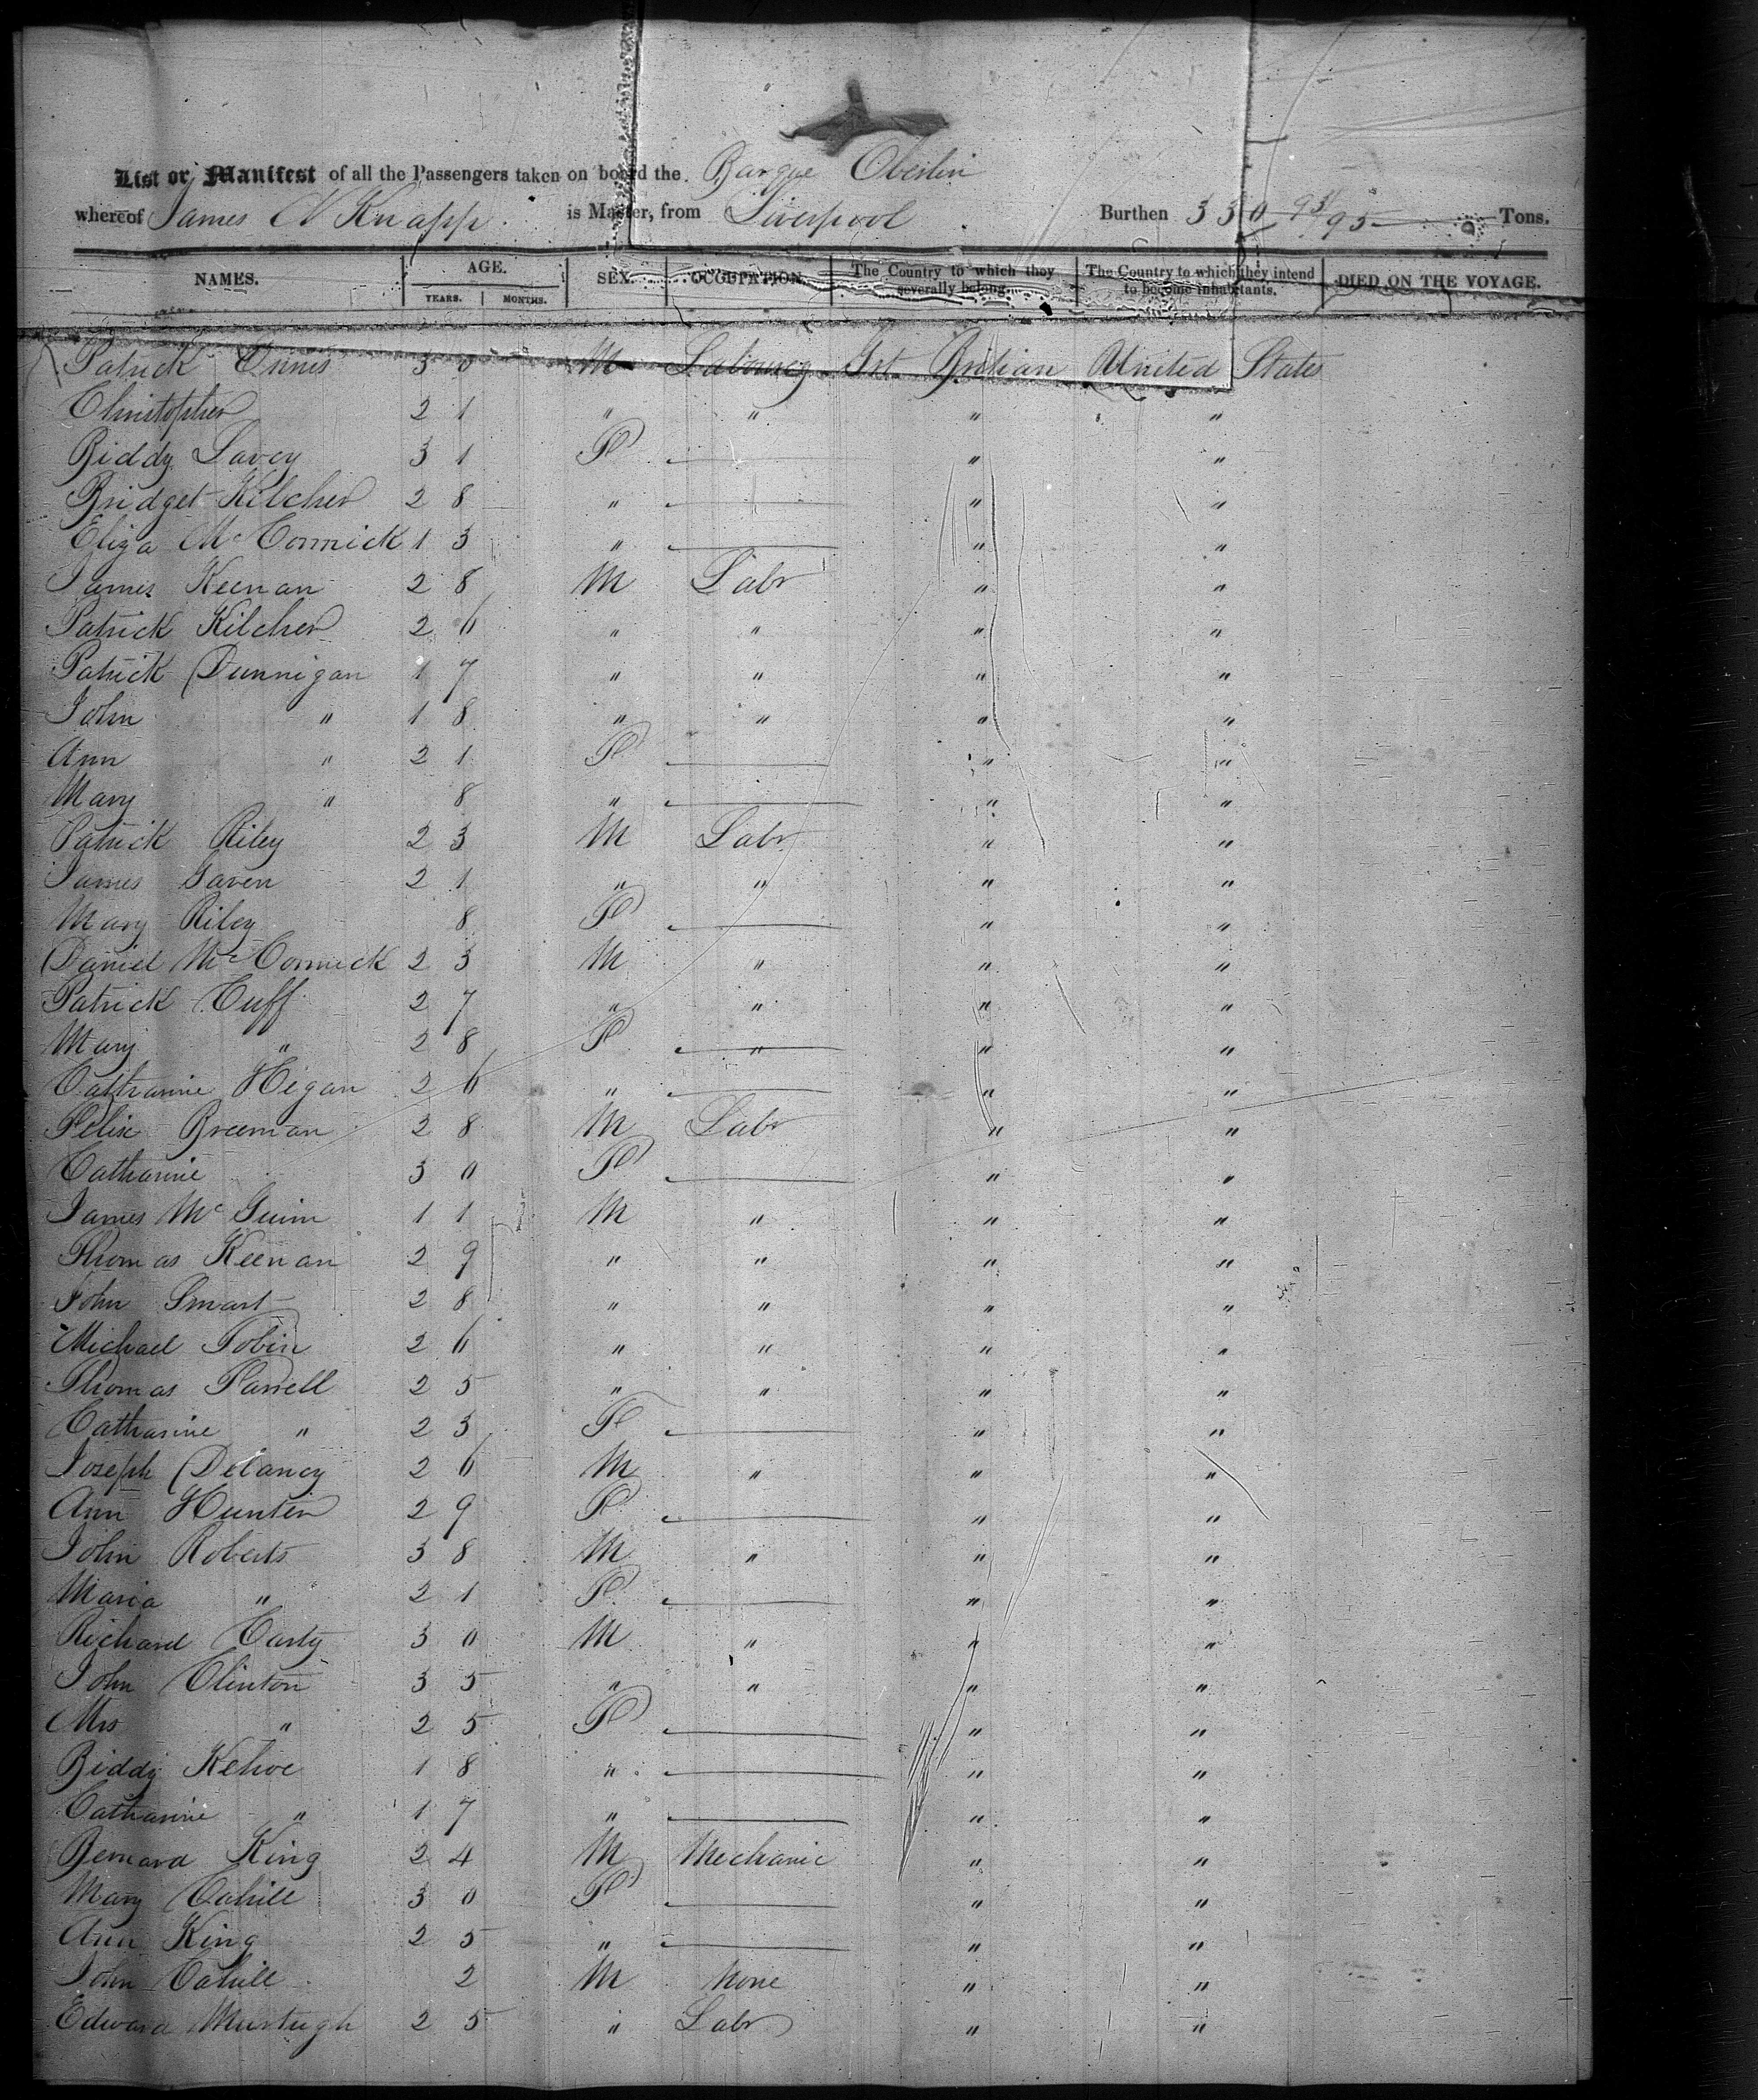 List or Manifest of all the Passengers taken on board the Barque Oberlin
whereof James N Knapp is Master, from Liverpool Burthen 330 93/95 Tons.
NAMES. AGE. SEX. OCCUPATION. The Country to which they severally belong. The Country to which they intend to become inhabitants. DIED ON THE VOYAGE.
YEARS. MONTHS.
Patrick Ennis 30 M Labourer Grt Britian United States
Christopher 21 " " " "
Biddy Lavey 31 F " "
Bridget Kilcher 28 " " "
Eliza McCormick 13 " " "
James Keenan 28 M Labr " "
Patrick Kilcher 26 " " " "
Patrick Dunnigan 17 " " " "
John " 18 " " " "
Ann " 21 F " "
Mary " 8 " " "
Patrick Riley 23 M Labr " "
James Gaven 21 " " " "
Mary Riley 8 F " "
Daniel McCormick 23 M " " "
Patrick Cuff 27 " " " "
Mary " 28 F " " "
Catharine Higan 26 " " "
Felix Breeman 28 M Labr " "
Catharine 30 F " "
James McGuinn 11 M " " "
Thomas Keenan 29 " " " "
John Smart 28 " " " "
Michael Tobin 26 " " " "
Thomas Farrell 25 " " " "
Catharine " 23 F " "
Joseph Delancy 26 M " " "
Ann Hunter 29 F " "
John Roberts 38 M " " "
Maria " 21 F " "
Richard Carty 30 M " " "
John Clinton 35 " " " "
Mrs " 25 F " "
Biddy Kehoe 18 " " "
Catharine " 17 " " "
Bernard King 24 M Mechanic " "
Mary Cahill 30 F " "
Ann King 25 " " "
John Cahill 2 M None " "
Edward Murtugh 25 " Labr " "